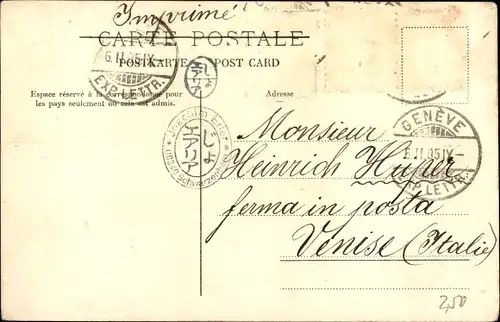 Imprimé
CARTE POSTALE
POSTKARTE POST CARD
6.II.05.IX
EXP. LETTR.
Espace réservé à la correspondance pour
les pays seulement où cela est admis.
Adresse
GENÈVE
6.II.05.IX–
EXP. LETTR.
Monsieur
Heinrich Huper
ferma in posta
Venise (Italie)
2,50